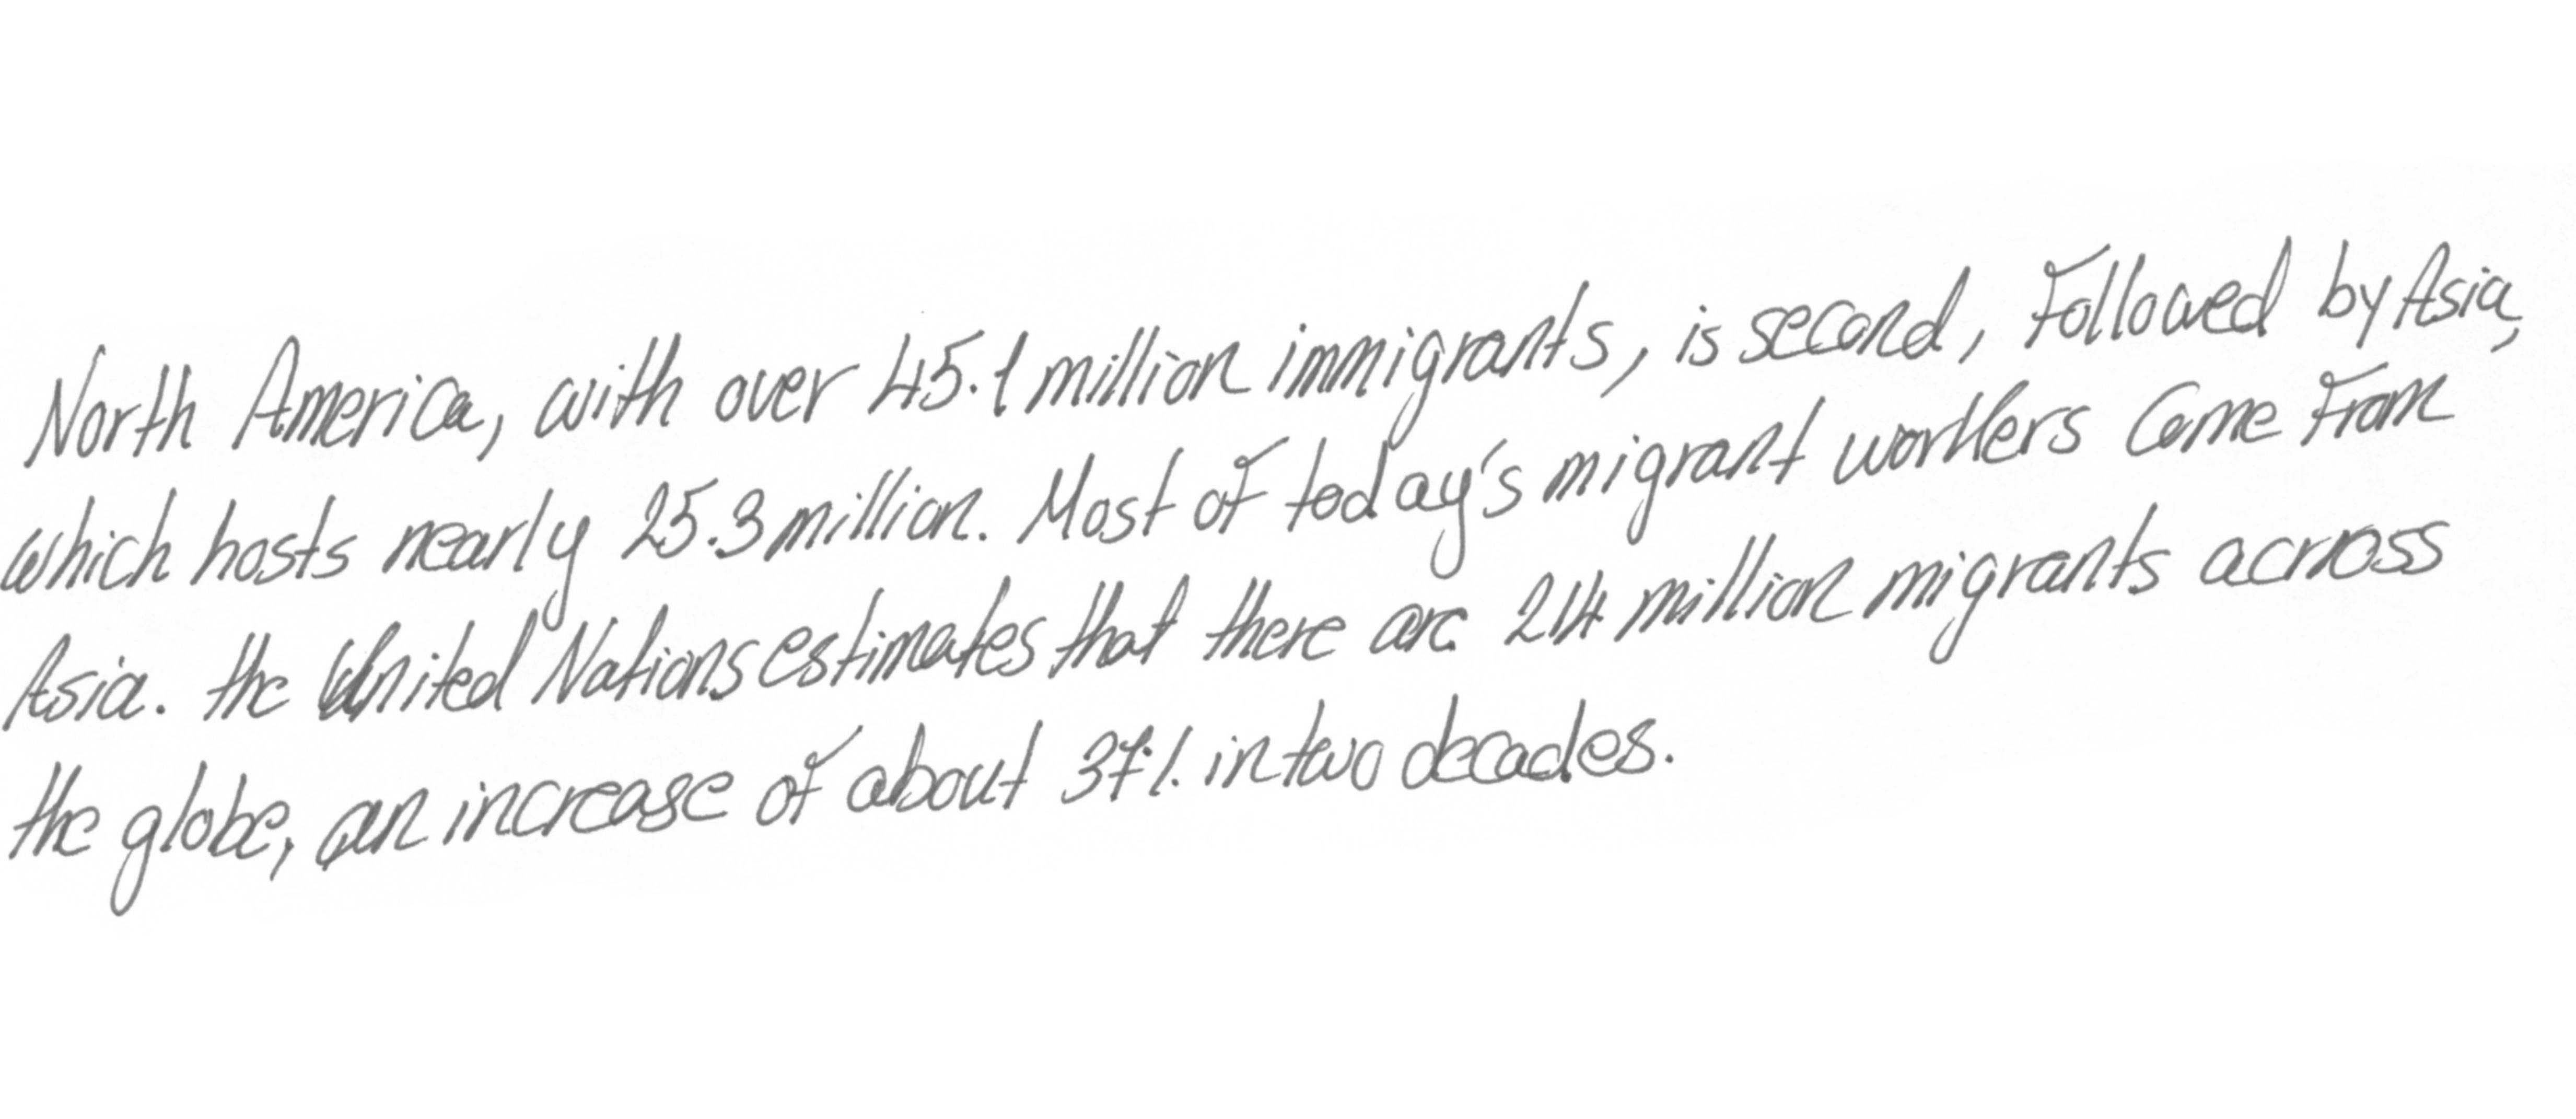 North America, with over 45.1 million immigrants, is second, followed by Asia,
which hosts nearly 25.3 million. Most of today's migrant workers come from
Asia. the United Nations estimates that there are 214 million migrants across
the globe, an increase of about 37% in two decades.